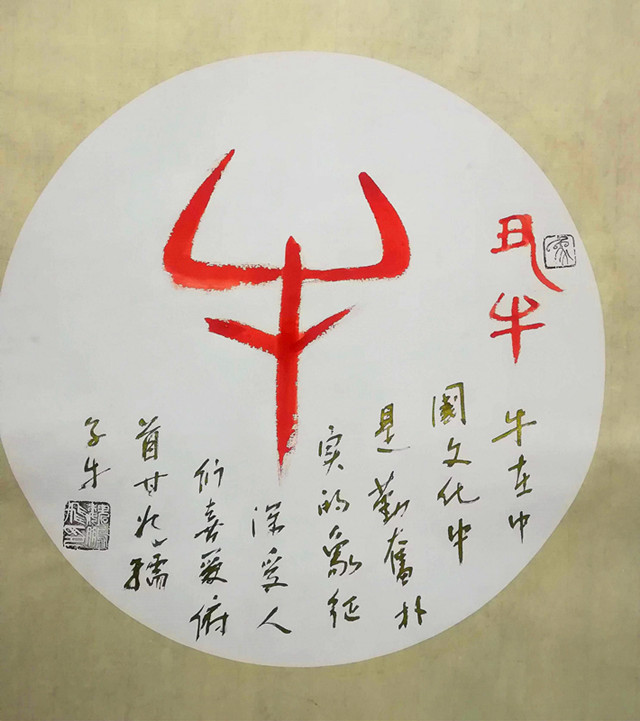 牛
丑牛
牛在中
國文化中
是勤奮朴
实的象征
深受人
们喜爱俯
首甘为孺
子牛